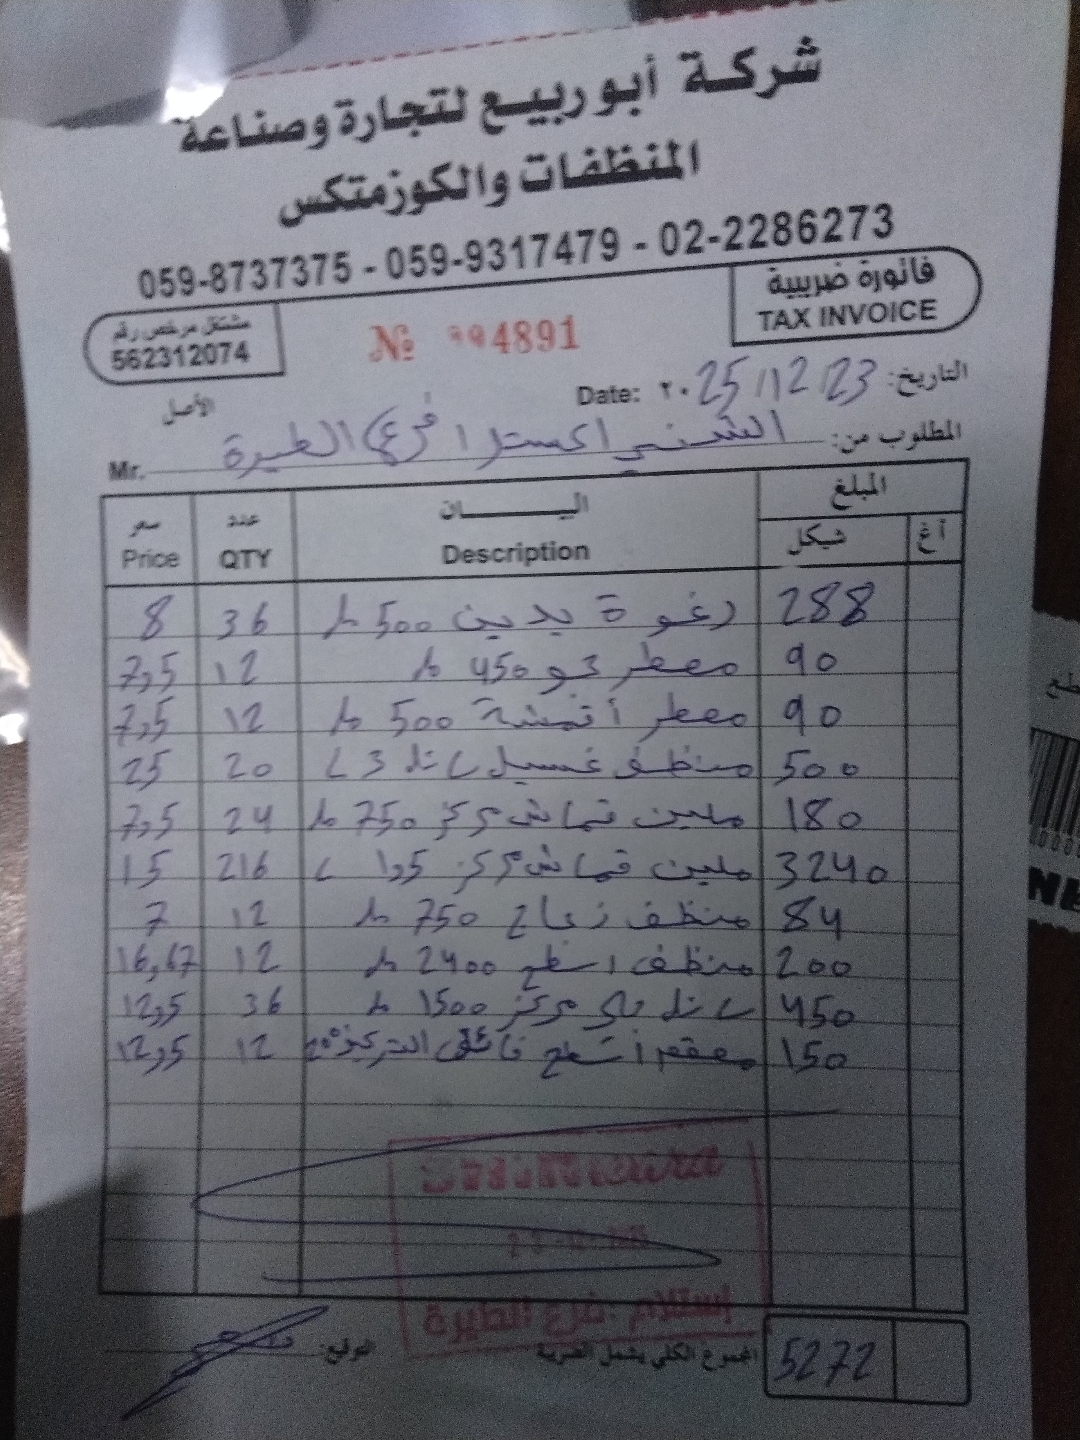 شركة أبو ربيع لتجارة وصناعة
المنظفات والكوزمتكس
059-8737375 - 059-9317479 - 02-2286273
فاتورة ضريبية
TAX INVOICE
مشتغل مرخص رقم
562312074
№ 004891
التاريخ: 23/12/2025 Date:
الأصل
المطلوب من: الشني اكسترا فرع الطيرة Mr.
المبلغ البيــــــان عدد سعر
أغ شيكل Description QTY Price
288 رغوة يدين 500 مل 36 8
90 معطر جو 450 مل 12 7,5
90 معطر أقمشة 500 مل 12 7,5
500 منظف غسيل 3 ل 20 25
180 ملين قماش مركز 750 مل 24 7,5
3240 ملين قماش مركز 1,5 ل 216 15
84 منظف زجاج 750 مل 12 7
200 منظف اسطح 2400 مل 12 16,67
450 مركز 1500 مل 36 12,5
150 معقم أسطح فائق التركيز 12 12,5
إستلام : فرع الطيرة
5272 المجموع الكلي يشمل الضريبة
التوقيع: